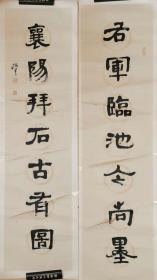 右軍臨池今尚墨
襄陽拜石古有圖